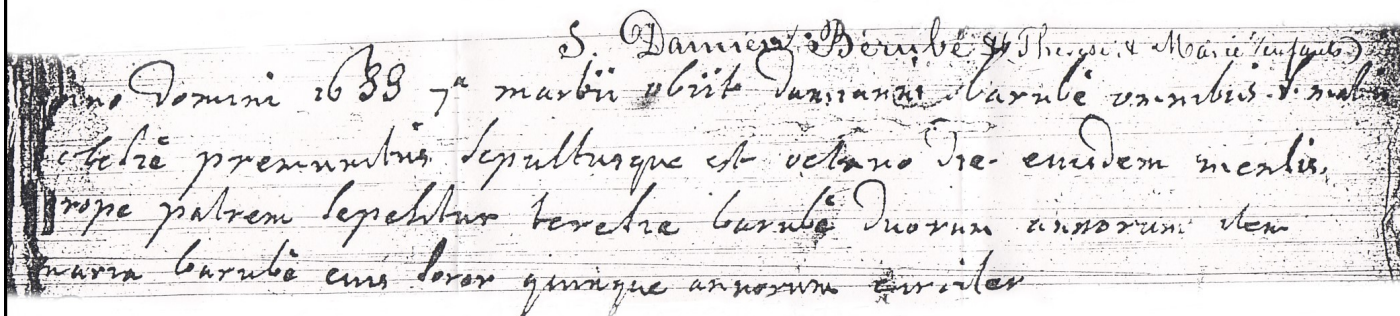 S. Damien Bérubé & Therese & Marie (enfants)
Anno Domini 1688 7a martii obiit damianus barubé omnibus
ecclesiæ premunitus sepultusque est octavo die eiusdem mensis.
prope patrem sepelitur teresia barubé duorum annorum item
maria barubé eius soror quinque annorum circiter